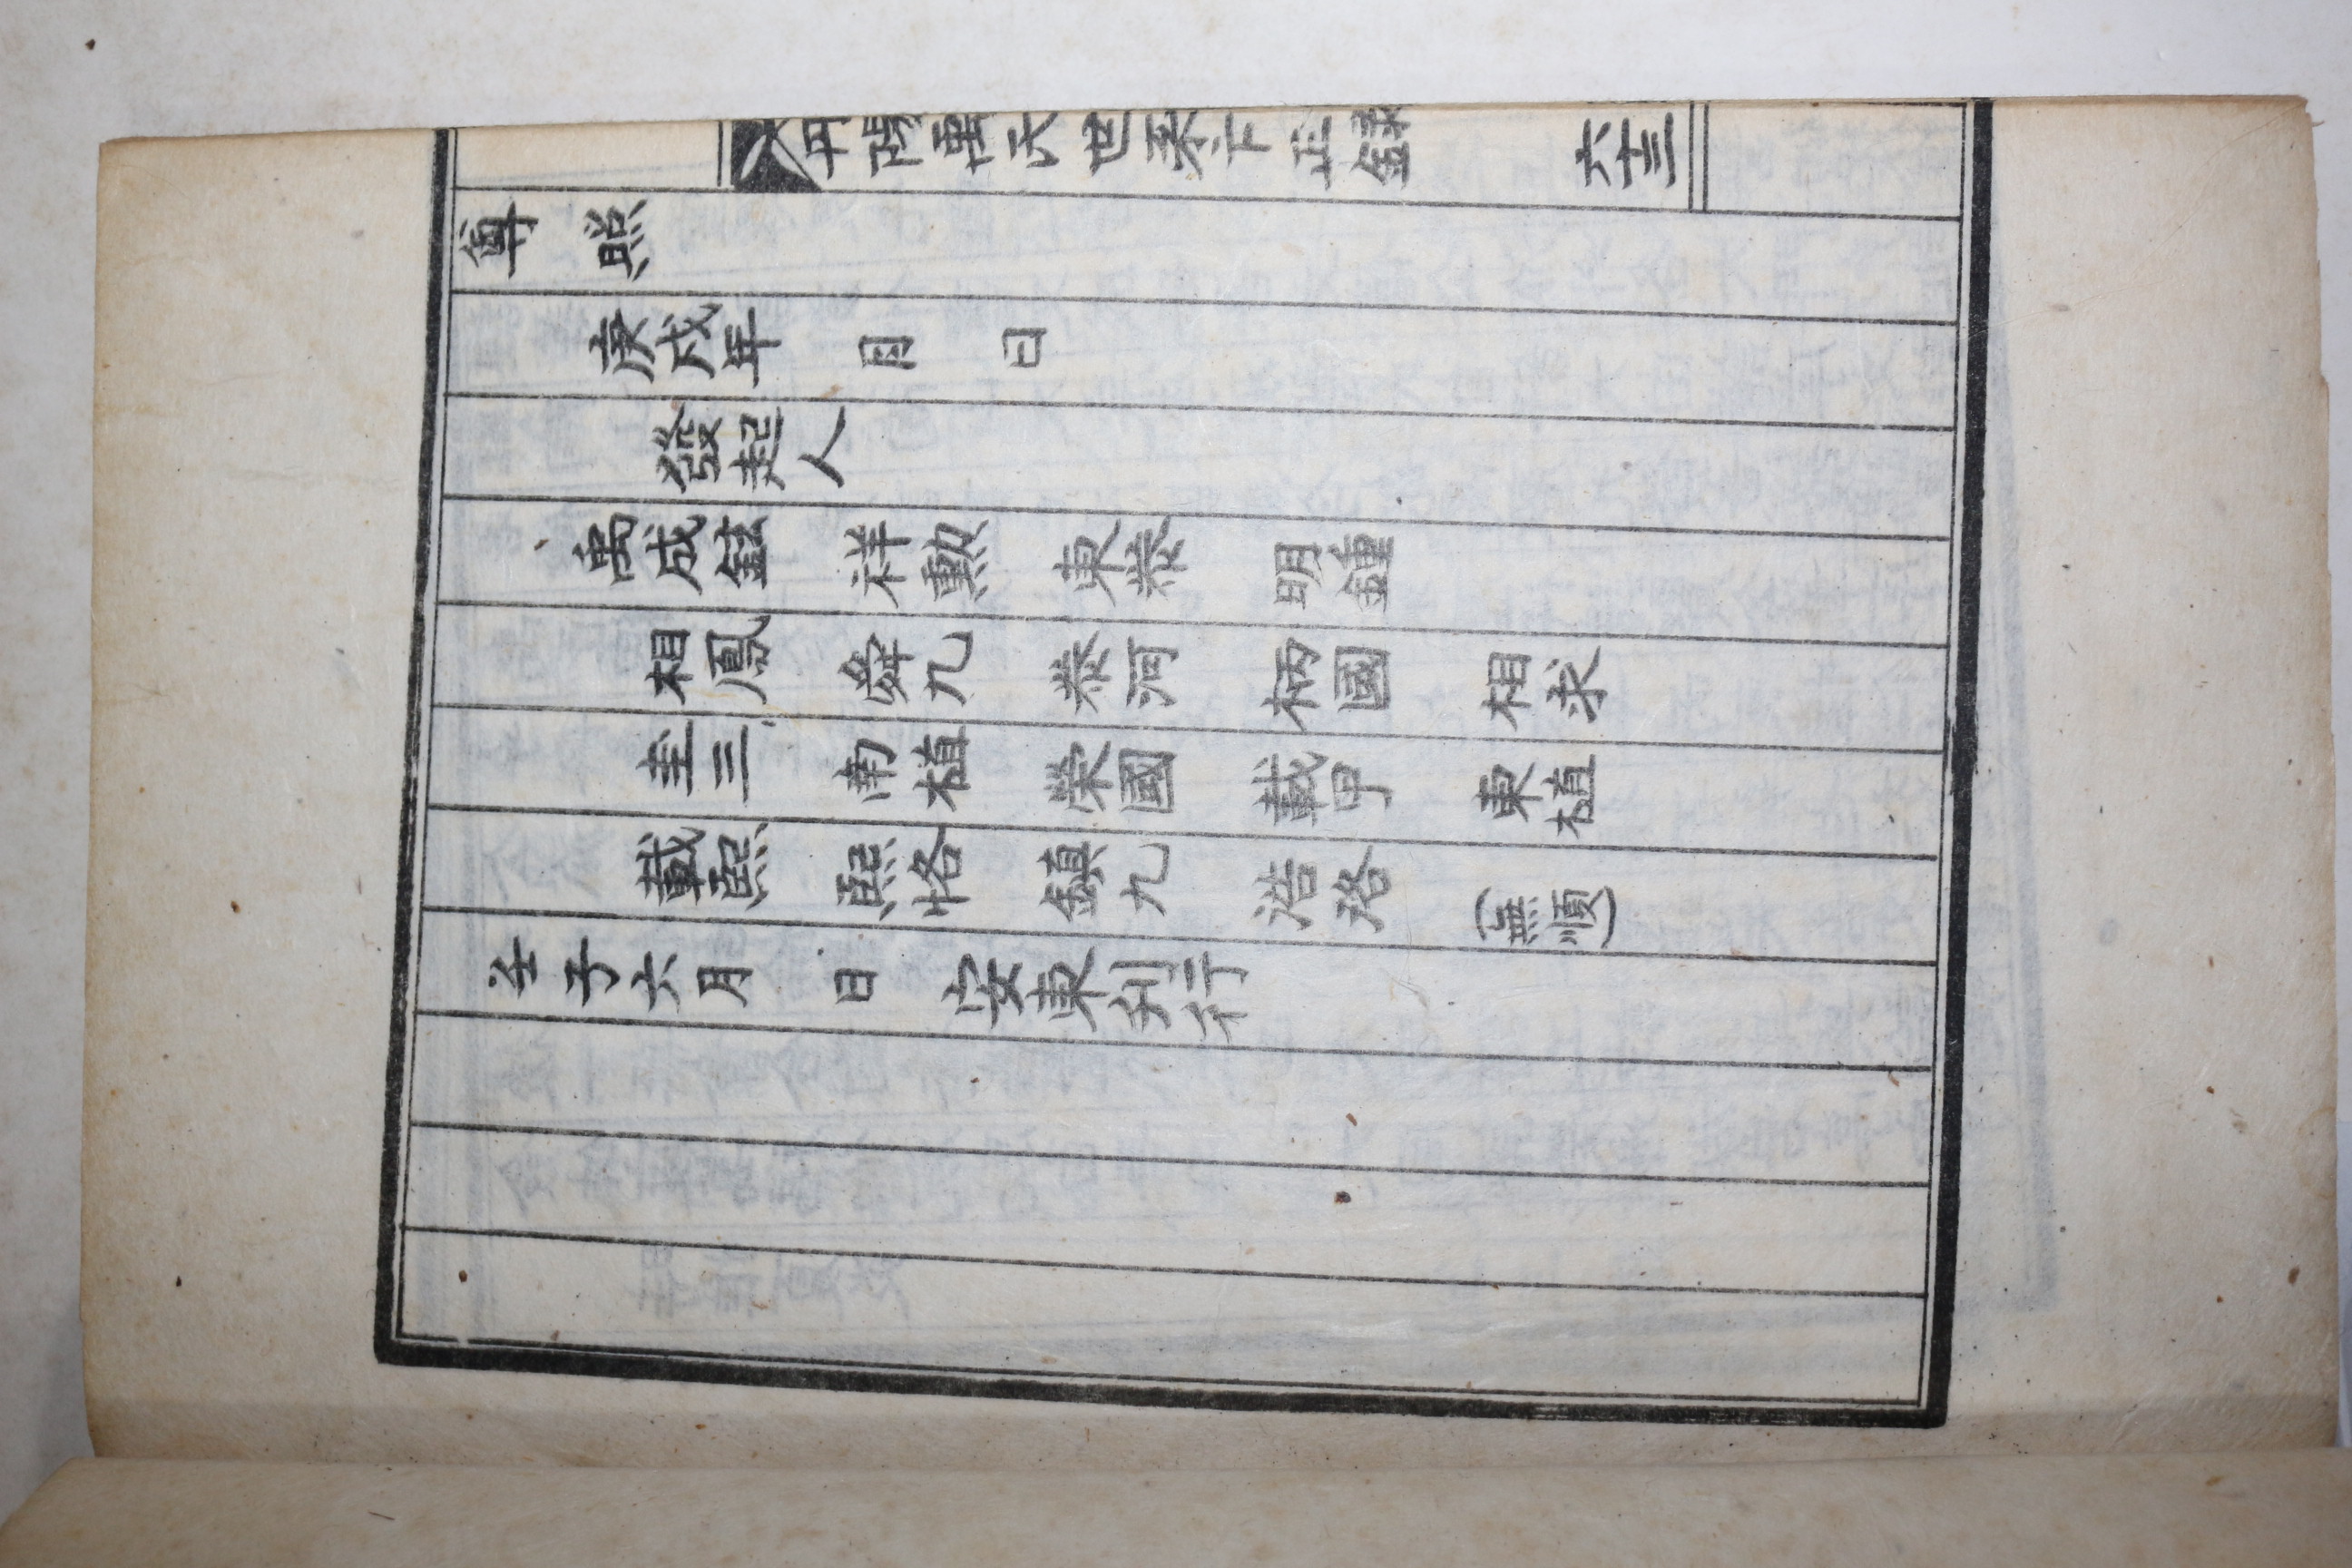 丹陽禹氏世系卞正錄 六十三
尊照
庚戌年 月 日
發起人
禹成鉉 祥勳 東泰 明鍾
相鳳 舜九 泰河 柄國 相求
圭三 南植 榮國 載甲 東植
載熙 熙恪 鎮九 浩珞 (無順)
壬子六月 日 安東刋行